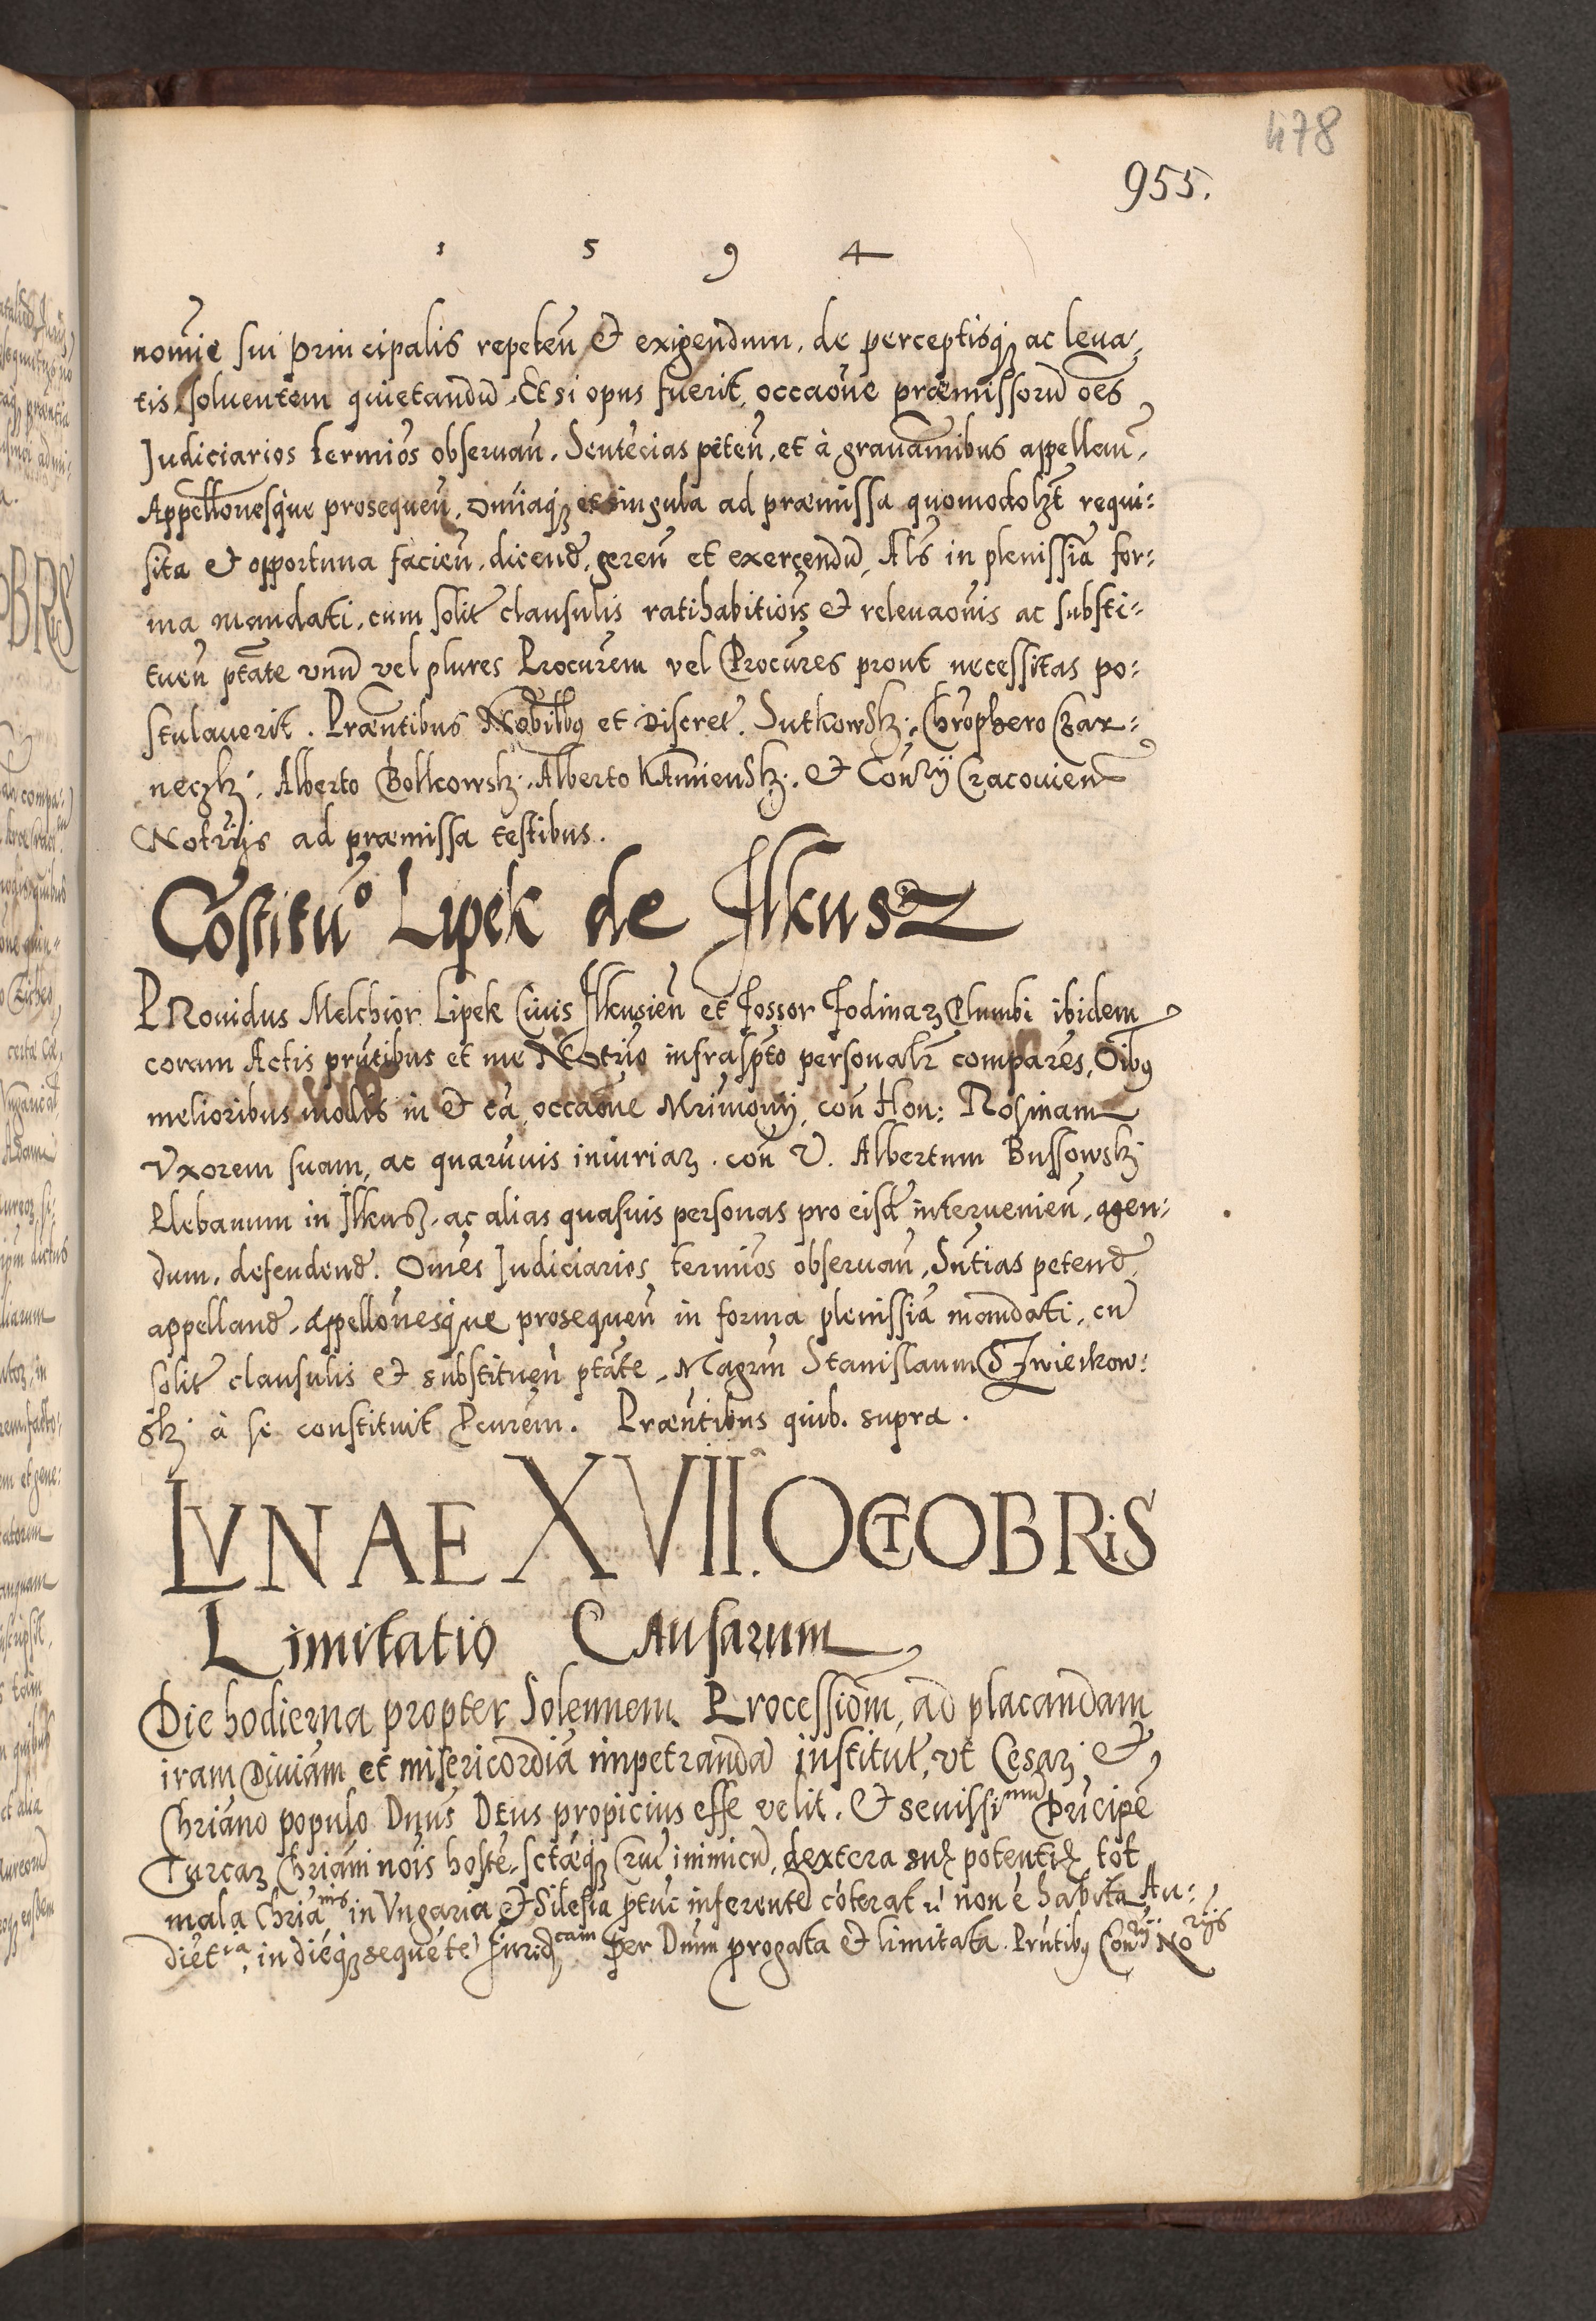 478
955.
1 5 9 4
nomīe sui principalis repeteñ et exigendum, de perceptisq₃ ac leua-
tis soluentem quietandū. Et si opus fuerit, occaōne præmissorū oēs
Judiciarios termiōs obseruañ. Sentēcias peteñ, et à grauāminibus appellañ,
Appellōnesq̃ue prosequeñ, om̃iaq₃ et singula ad præmissa quomodolz̃t requi:
sita et opportuna facieñ, dicend̃, gereñ et exercendū, Al̃s in plenissĩa for:
ma mandati, cum solit̃ clausulis ratihabitiōis et releuaōnis ac substi:
tueñ ptāte vnū vel plures Procur̃em vel Procur̃es prout necessitas po:
stulauerit. Præñtibus Nobil̃ibus et Discret̃. Sutkowsk:, Chr̃ophero Czar:
neczk: Alberto Bolkowsk: Alberto KAmiensk: et Coñ̃rij Cracouieñ
Notr̃ijs ad præmissa testibus.
Cōstituᵒ Lipek de Ilkusz
PRouidus Melchior Lipek Ciuis Ilkusieñ et Fossor Fodinaꝝ Plumbi ibidem
coram Actis pr̃ntibus et me Notr̃io infrasp̃to personalr̃ comparēs, Oĩbus
melioribus modis in et cā, occaōne Mr̃imonij, coñ Hon: Rosinam
Vxorem suam, ac quarũuis iniuriaꝝ. coñ V. Albertum Bussowsk:
Plebanum in Ilkusz, ac alias quasuis personas pro eisd̃ interuenieñ, agen:
dum, defendend̃. Om̃es Judiciarios termiōs obseruañ, Sñtias petend̃,
appelland̃, Appellōnesq̃ue prosequeñ in forma plenissĩa mandati, cū
solit̃ clausulis et substitueñ ptāte, Magr̃m Stanislaum Zwierkow:
sk: à se constituit Pcur̃em. Præñtibus quib. supra.
LVNAE XVIIᵃ. OCTOBRiS
Limitatio CAusarum
Die hodierna propter Solennem Processiom̃, ad placandam
iram Diuiām et misericordiā impetrandā institut̃, vt Cesaꝝ et
Chr̃iano populo Dñus DEus propicius esse velit. et seuissimū Pr̃ncipē
Turcaꝝ Chr̃iani nōis hostē, sctæq₃ Cruc̃ inimicū, dextera suę potentię tot
mala Chr̃iaⁿⁱˢ in Vngaria et Silesia ptūc inferentē cōterat et̃ non ē habita Au:
dietⁱᵃ, in dieq₃ sequētē Juridᶜᵃᵐ per Dñum progata et limitata. Pr̃ntibus Conʳⁱʲ Noʳⁱʲˢ